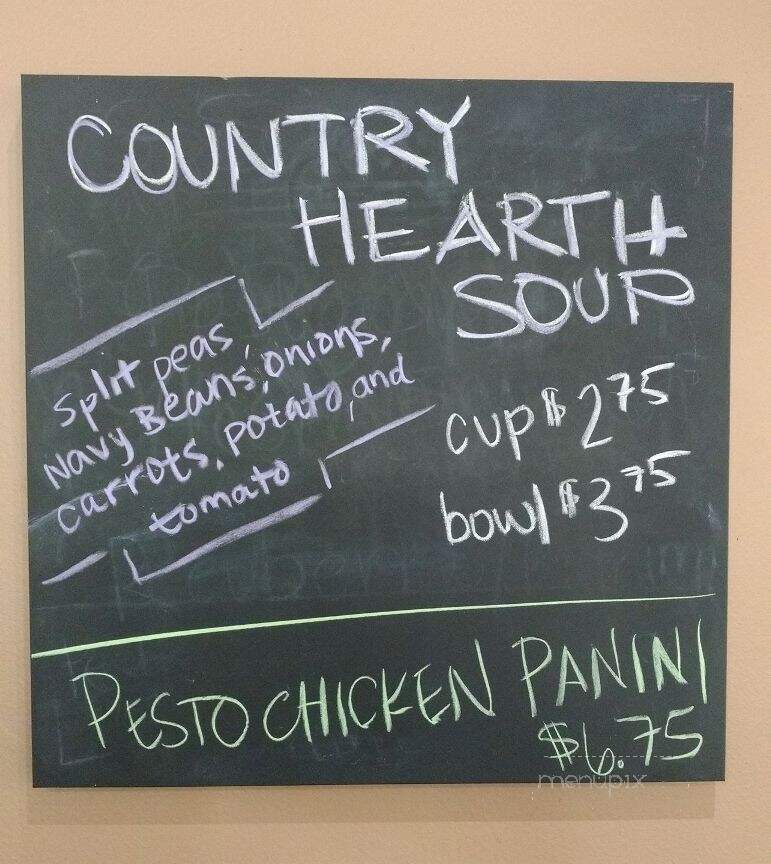 COUNTRY
HEARTH
SOUP
Split peas,
Navy Beans, onions,
carrots, potato, and
tomato
cup $2.75
bowl $3.75
PESTO CHICKEN PANINI
$6.75
menupix